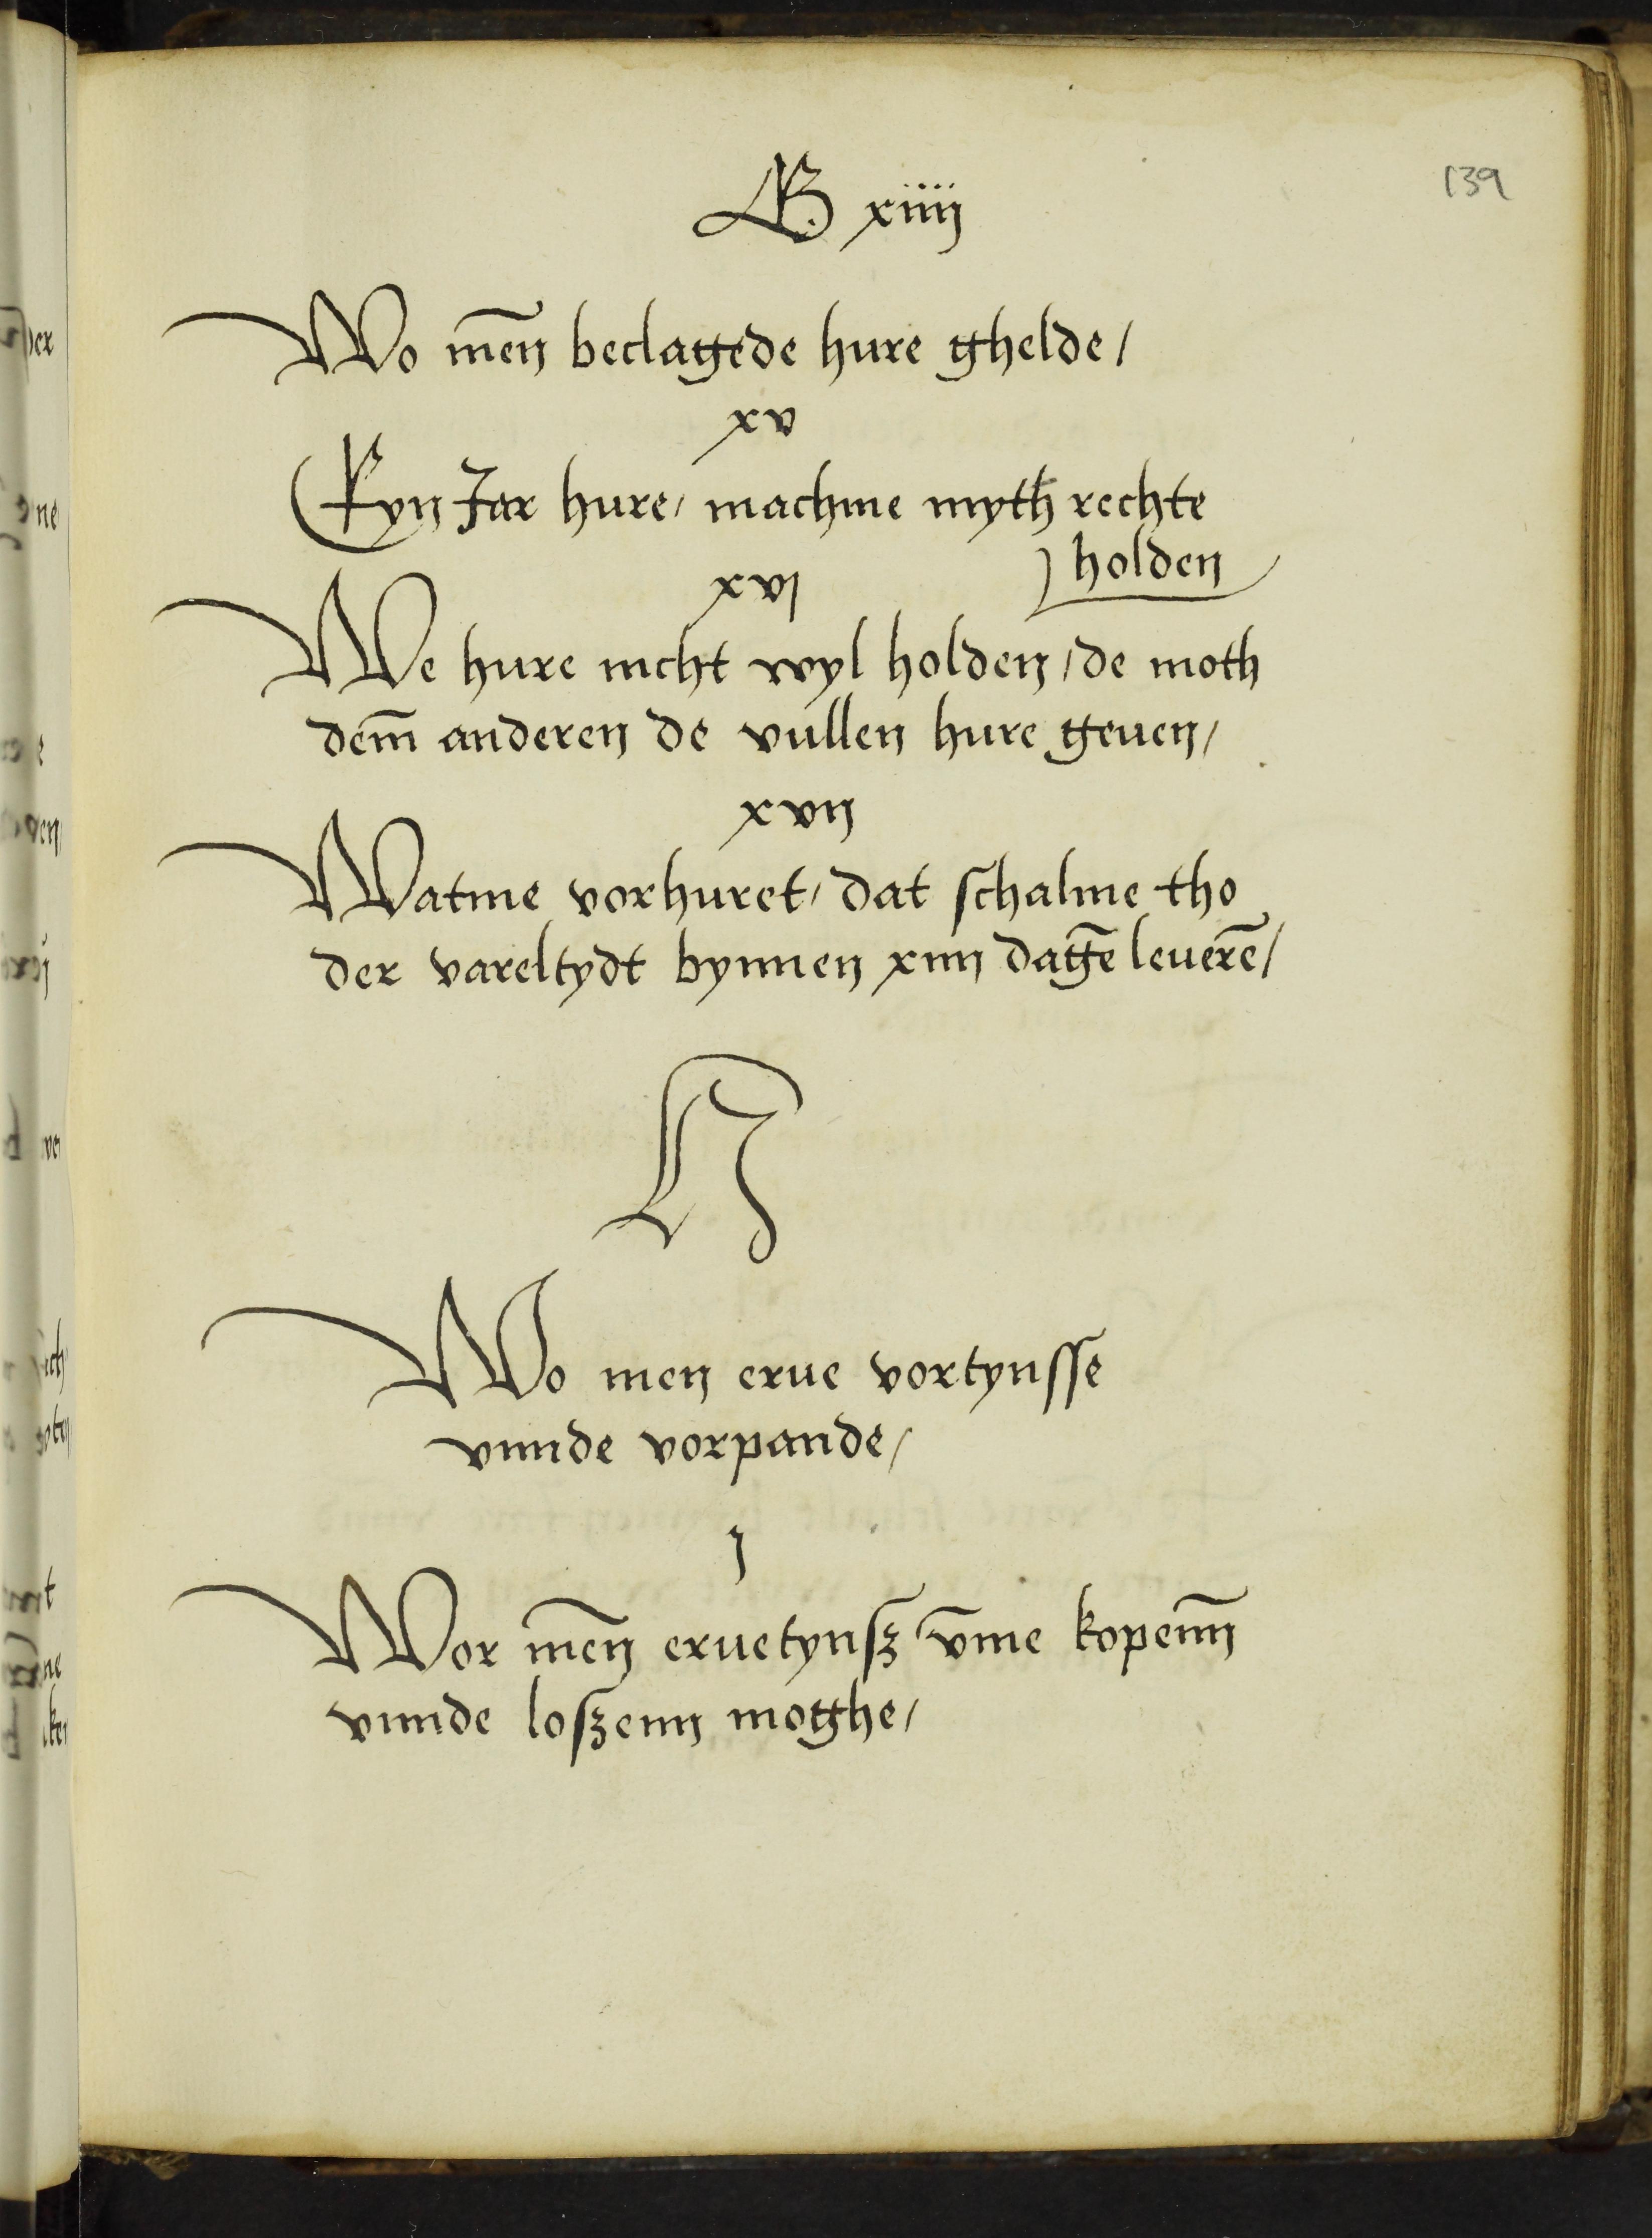 139
G. xiiij
Wo me̅n beclagede hure ghelde/
xv
Eyn Jar hure/ machme myth rechte
holden
xvj
We hure nicht wyl holden/de moth
dem̅ anderen de vullen hure geuen/
xvij
Watme vorhuret/ dat schalme tho
der vareltydt bynnen xiiij dage̅ leuere̅/
H
Wo men erue vortynsse
vnnde vorpande/
j
Wor me̅n eruetynsz v̅me kopenn̅
vnnde loszenn moghe/